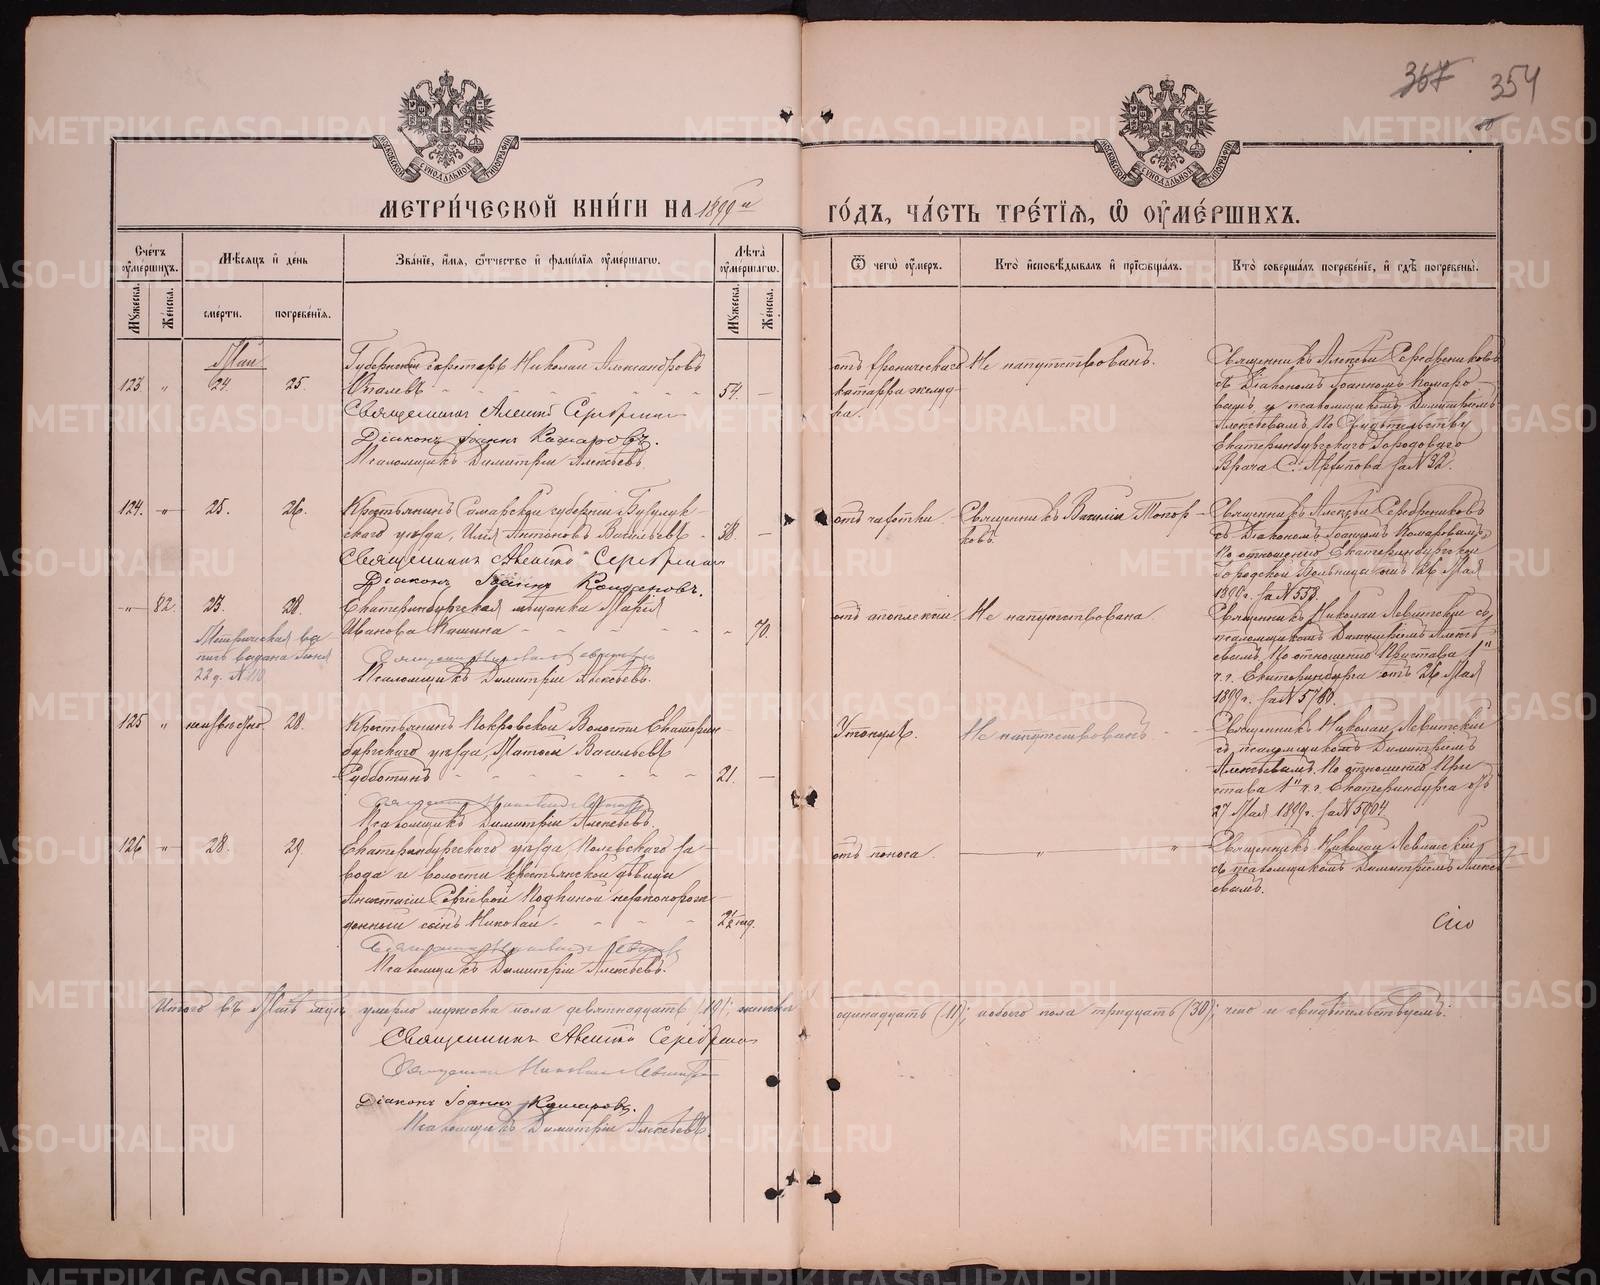 367 354
МЕТРИ́ЧЕСКОЙ КНИ́ГИ НА 1899й ГО́ДЪ, ЧА́СТЬ ТРЕ́ТІЯ, Ѡ ОУМЕ́РШИХЪ.
МОСКОВСКОЙ СѴНОДАЛЬНОЙ ТИПОГРАФІИ
МОСКОВСКОЙ СѴНОДАЛЬНОЙ ТИПОГРАФІИ
Сче́тъ оуме́ршихъ.
Мѣ́сяцъ и҆ де́нь
Зва́ніе, и҆́мя, ѻ҆́тчество и҆ фами́лія оуме́ршагѡ.
Лѣ́та оуме́ршагѡ.
Ѿ чегѡ̀ оу́меръ.
Кто̀ и҆сповѣ́дывалъ и҆ прїѡбща́лъ.
Кто̀ соверша́лъ погребе́ніе, и҆ гдѣ̀ погребены̀.
Мꙋ́жеска.
Же́нска.
сме́рти.
погребе́нія.
Мꙋ́жеска.
Же́нска.
Май
123 " 24 25.
Губернскій секретарь Николай Александровъ
54. —
Священникъ Алексій Серебрен
Діаконъ Іоаннъ Комаровъ.
Псаломщикъ Димитрій Алексѣевъ.
отъ хроническаго
катарра желуд-
ка.
Не напутствованъ.
Священникъ Алексѣй Серебрениковъ
съ Діакономъ Іоанномъ Комаро-
вымъ и псаломщикомъ Димитріемъ
Алексѣевымъ. По свидѣтельству
Екатеринбургскаго Городоваго
Врача С. Архипова за № 32.
124. " 25. 26.
Крестьянинъ Самарской губерніи Бугурус-
скаго уѣзда, Илія Антоновъ Васильевъ 38. —
Священникъ Алексій Серебрен
Діаконъ Іоаннъ Комаровъ.
отъ чахотки.
Священникъ Василій Топор-
ковъ.
Священникъ Алексѣй Серебрениковъ
съ Діакономъ Іоанномъ Комаровымъ,
По отношенію Екатеринбургской
Городской Больницы отъ 26 Мая
1899 г. за № 553.
" 82. 25. 28.
Екатеринбургская мѣщанка Марія
Иванова Кашина " 70.
Священникъ Николай Левитскій
Псаломщикъ Димитрій Алексѣевъ.
Метрическая вы-
пись выдана Іюня
22 д. № 110
отъ апоплексіи
Не напутствована.
Священникъ Николай Левитскій съ
псаломщикомъ Димитріемъ Алексѣ-
евымъ. По отношенію Пристава 1"
ч. г. Екатеринбурга отъ 26 Мая
1899 г. за № 5780.
125 " неизвѣстно 28.
Крестьянинъ Покровской Волости Екатерин-
бургскаго уѣзда, Матѳей Васильевъ
Субботинъ 21. —
Священникъ Николай Левитскій
Псаломщикъ Димитрій Алексѣевъ.
Утонулъ.
Не напутствованъ
Священникъ Николай Левитскій
съ псаломщикомъ Димитріемъ
Алексѣевымъ. По отношенію При-
става 1" ч. г. Екатеринбурга отъ
27 Мая 1899 г. за № 5904
126 " 28. 29.
Екатеринбургскаго уѣзда Полевскаго за-
вода и волости крестьянской дѣвицы
Анастасіи Сергіевой незаконорож-
денный сынъ Николай 2½ год.
Священникъ Николай Левитскій
Псаломщикъ Димитрій Алексѣевъ.
отъ поноса.
" "
Священникъ Николай Левитскій
съ псаломщикомъ Димитріемъ Алексѣ-
евымъ.
Итого въ Маѣ мѣс. умерло мужеска пола девятнадцать (19); женска одинадцать (11); обоего пола тридцать (30); что и свидѣтельствуемъ:
Священникъ Алексій Серебрен
Священникъ Николай Левитскій
Діаконъ Іоаннъ Комаровъ.
Псаломщикъ Димитрій Алексѣевъ.
METRIKI.GASO-URAL.RU